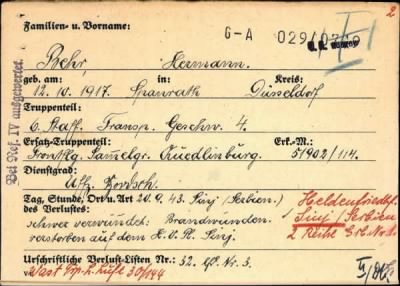 2
Familien- u. Vorname:
G-A 029/0
Behr, Hermann.
geb. am: in: Kreis:
12.10.1917. Spanrath Düsseldorf
Truppenteil:
6. Staff. Transp. Geschw. 4.
Ersatz-Truppenteil: Erk.-M.:
Frontflg. Sammelgr. Quedlinburg. 51902/114.
Dienstgrad:
Uffz.
Tag, Stunde, Ort u. Art 20.9.43. Sinj (Serbien).
des Verlustes:
schwer verwundet: Brandwunden.
verstorben auf dem H.V.Pl. Sinj.
Heldenfriedhf.
Sinj/Serbien
2 Reihe Gr. Nr.
Urschriftliche Verlust-Listen Nr.: 32. Nr. 3.
30/144
Bei Ref. IV ausgewertet.